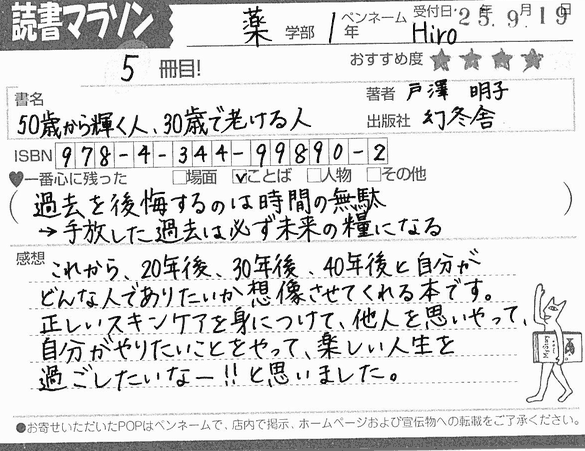 読書マラソン
薬 学部 1 年 ペンネーム Hiro 受付日・25年9月19日
5 冊目! おすすめ度 ★★★★★
書名 50歳から輝く人、30歳で老ける人
著者 戸澤 明子
出版社 幻冬舎
ISBN 978-4-344-99890-2
♥一番心に残った □場面 ☑ことば □人物 □その他
(過去を後悔するのは時間の無駄
→手放した過去は必ず未来の糧になる)
感想 これから、20年後、30年後、40年後と自分が
どんな人でありたいか想像させてくれる本です。
正しいスキンケアを身につけて、他人を思いやって、
自分がやりたいことをやって、楽しい人生を
過ごしたいなー!!と思いました。
●お寄せいただいたPOPはペンネームで、店内で掲示、ホームページおよび宣伝物への転載をご了承ください。